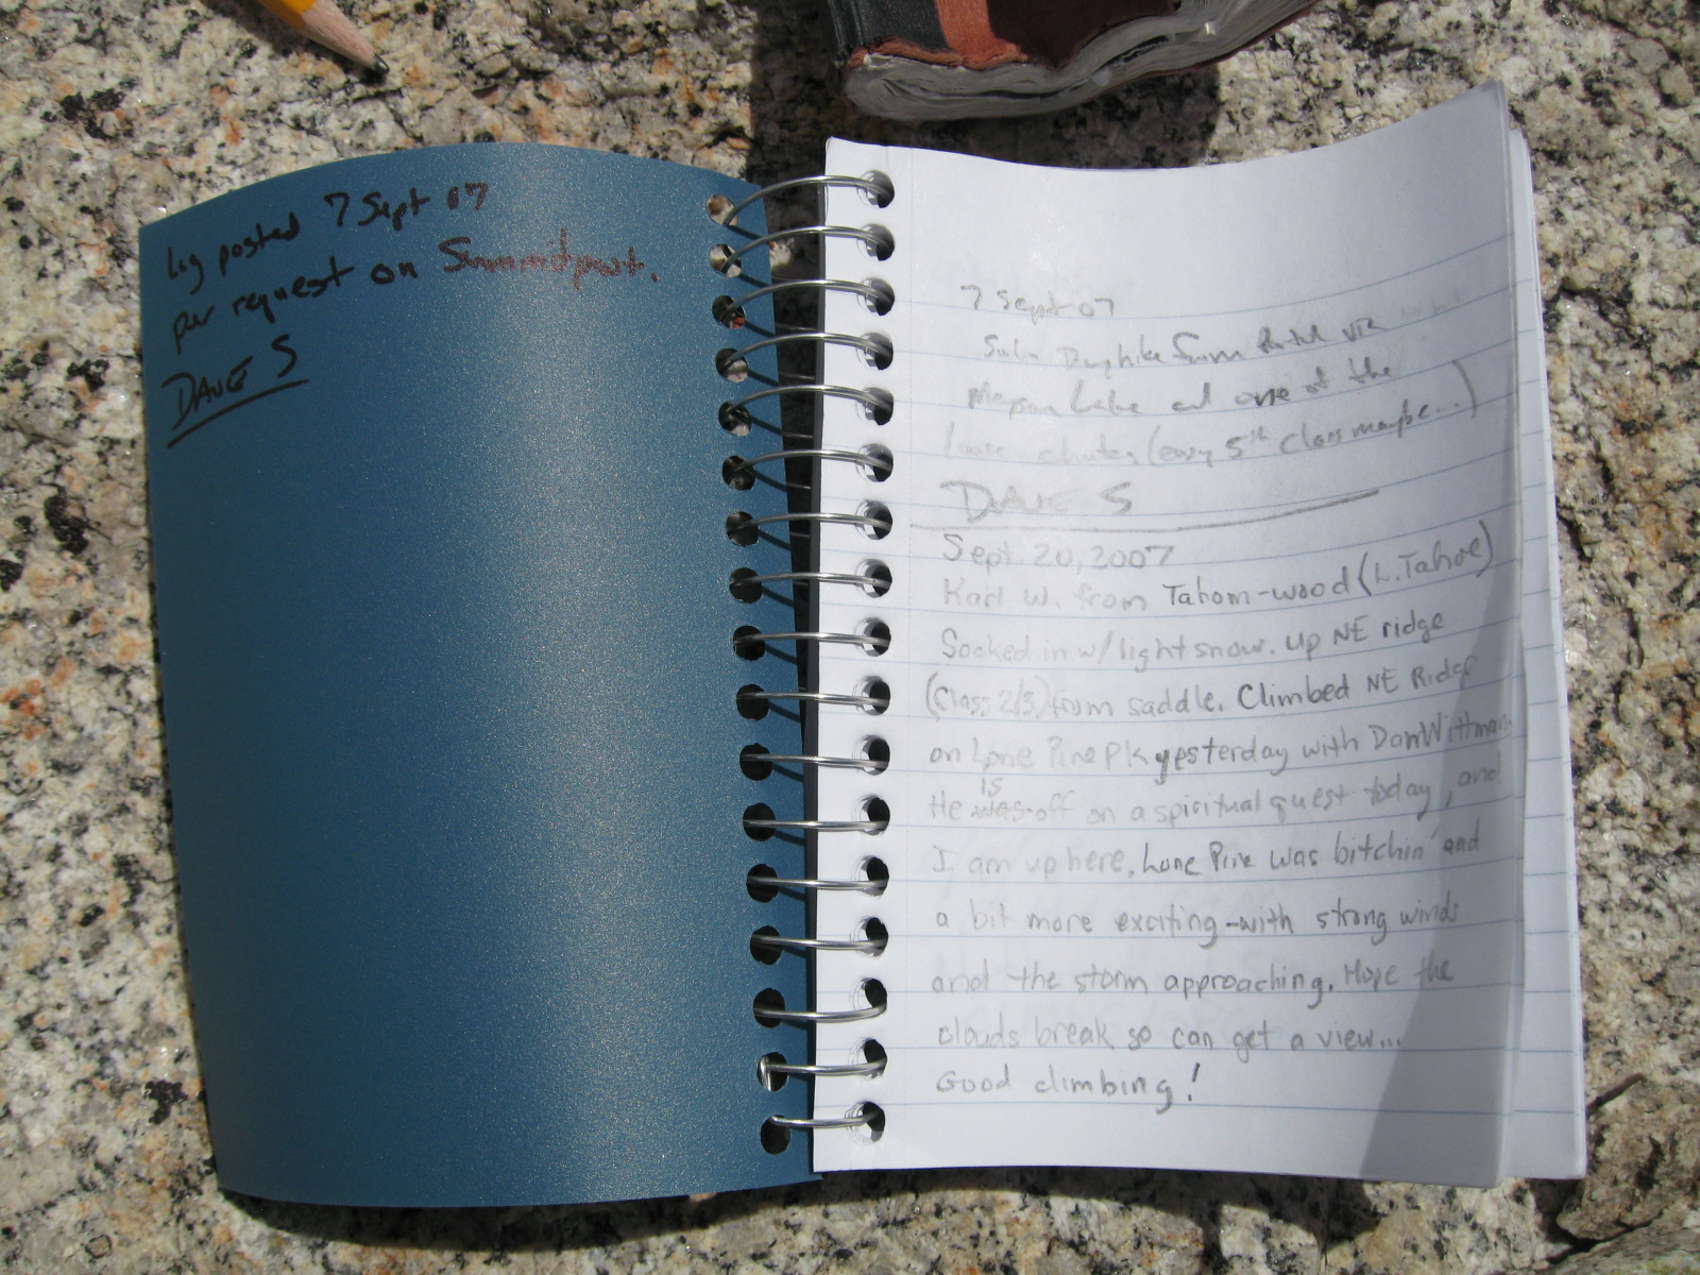 Log posted 7 Sept 07
per request on Summitpost.
DAVE S
7 Sept 07
Dayhike from Portal via
Lake and one of the
Loose chutes (easy 5th class maybe...)
DAVE S
Sept 20, 2007
Karl W. from Tahom-wood (L. Tahoe)
Socked in w/ light snow. Up NE ridge
(Class 2/3) from saddle. Climbed NE Ridge
on Lone Pine Pk yesterday with Dan Wittman
is
He was off on a spiritual quest today, and
I am up here. Lone Pine was bitchin' and
a bit more exciting - with strong winds
and the storm approaching. Hope the
clouds break so can get a view...
Good climbing!